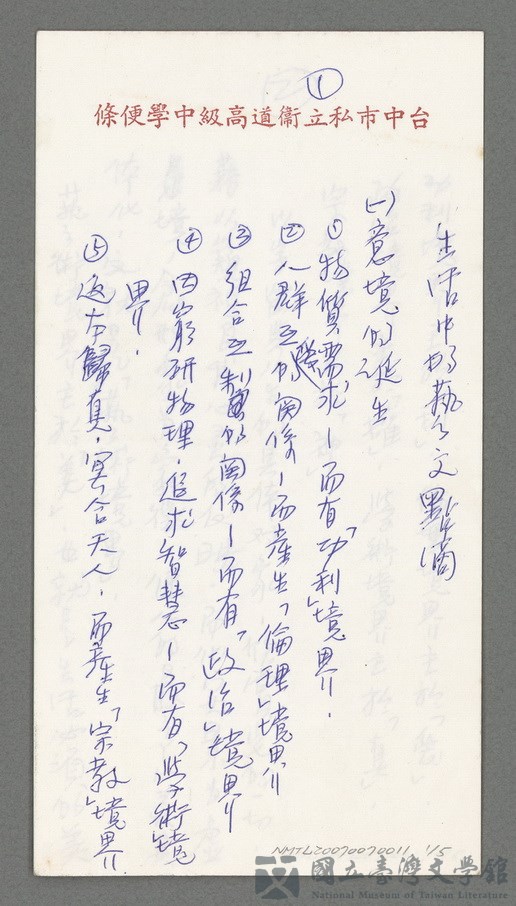 ①
台中市私立衛道高級中學便條
生活中的藝文點滴
(一)意境的誕生
①物質需求—而有「功利」境界.
②人群互際的關係—而產生「倫理」境界
③組合互制的關係—而有「政治」境界
④因窮研物理.追求智慧—而有「學術」境
界.
⑤返本歸真.冥合天人.而產生「宗教」境界.
NMTL20070070011 1/5
國立臺灣文學館
National Museum of Taiwan Literature